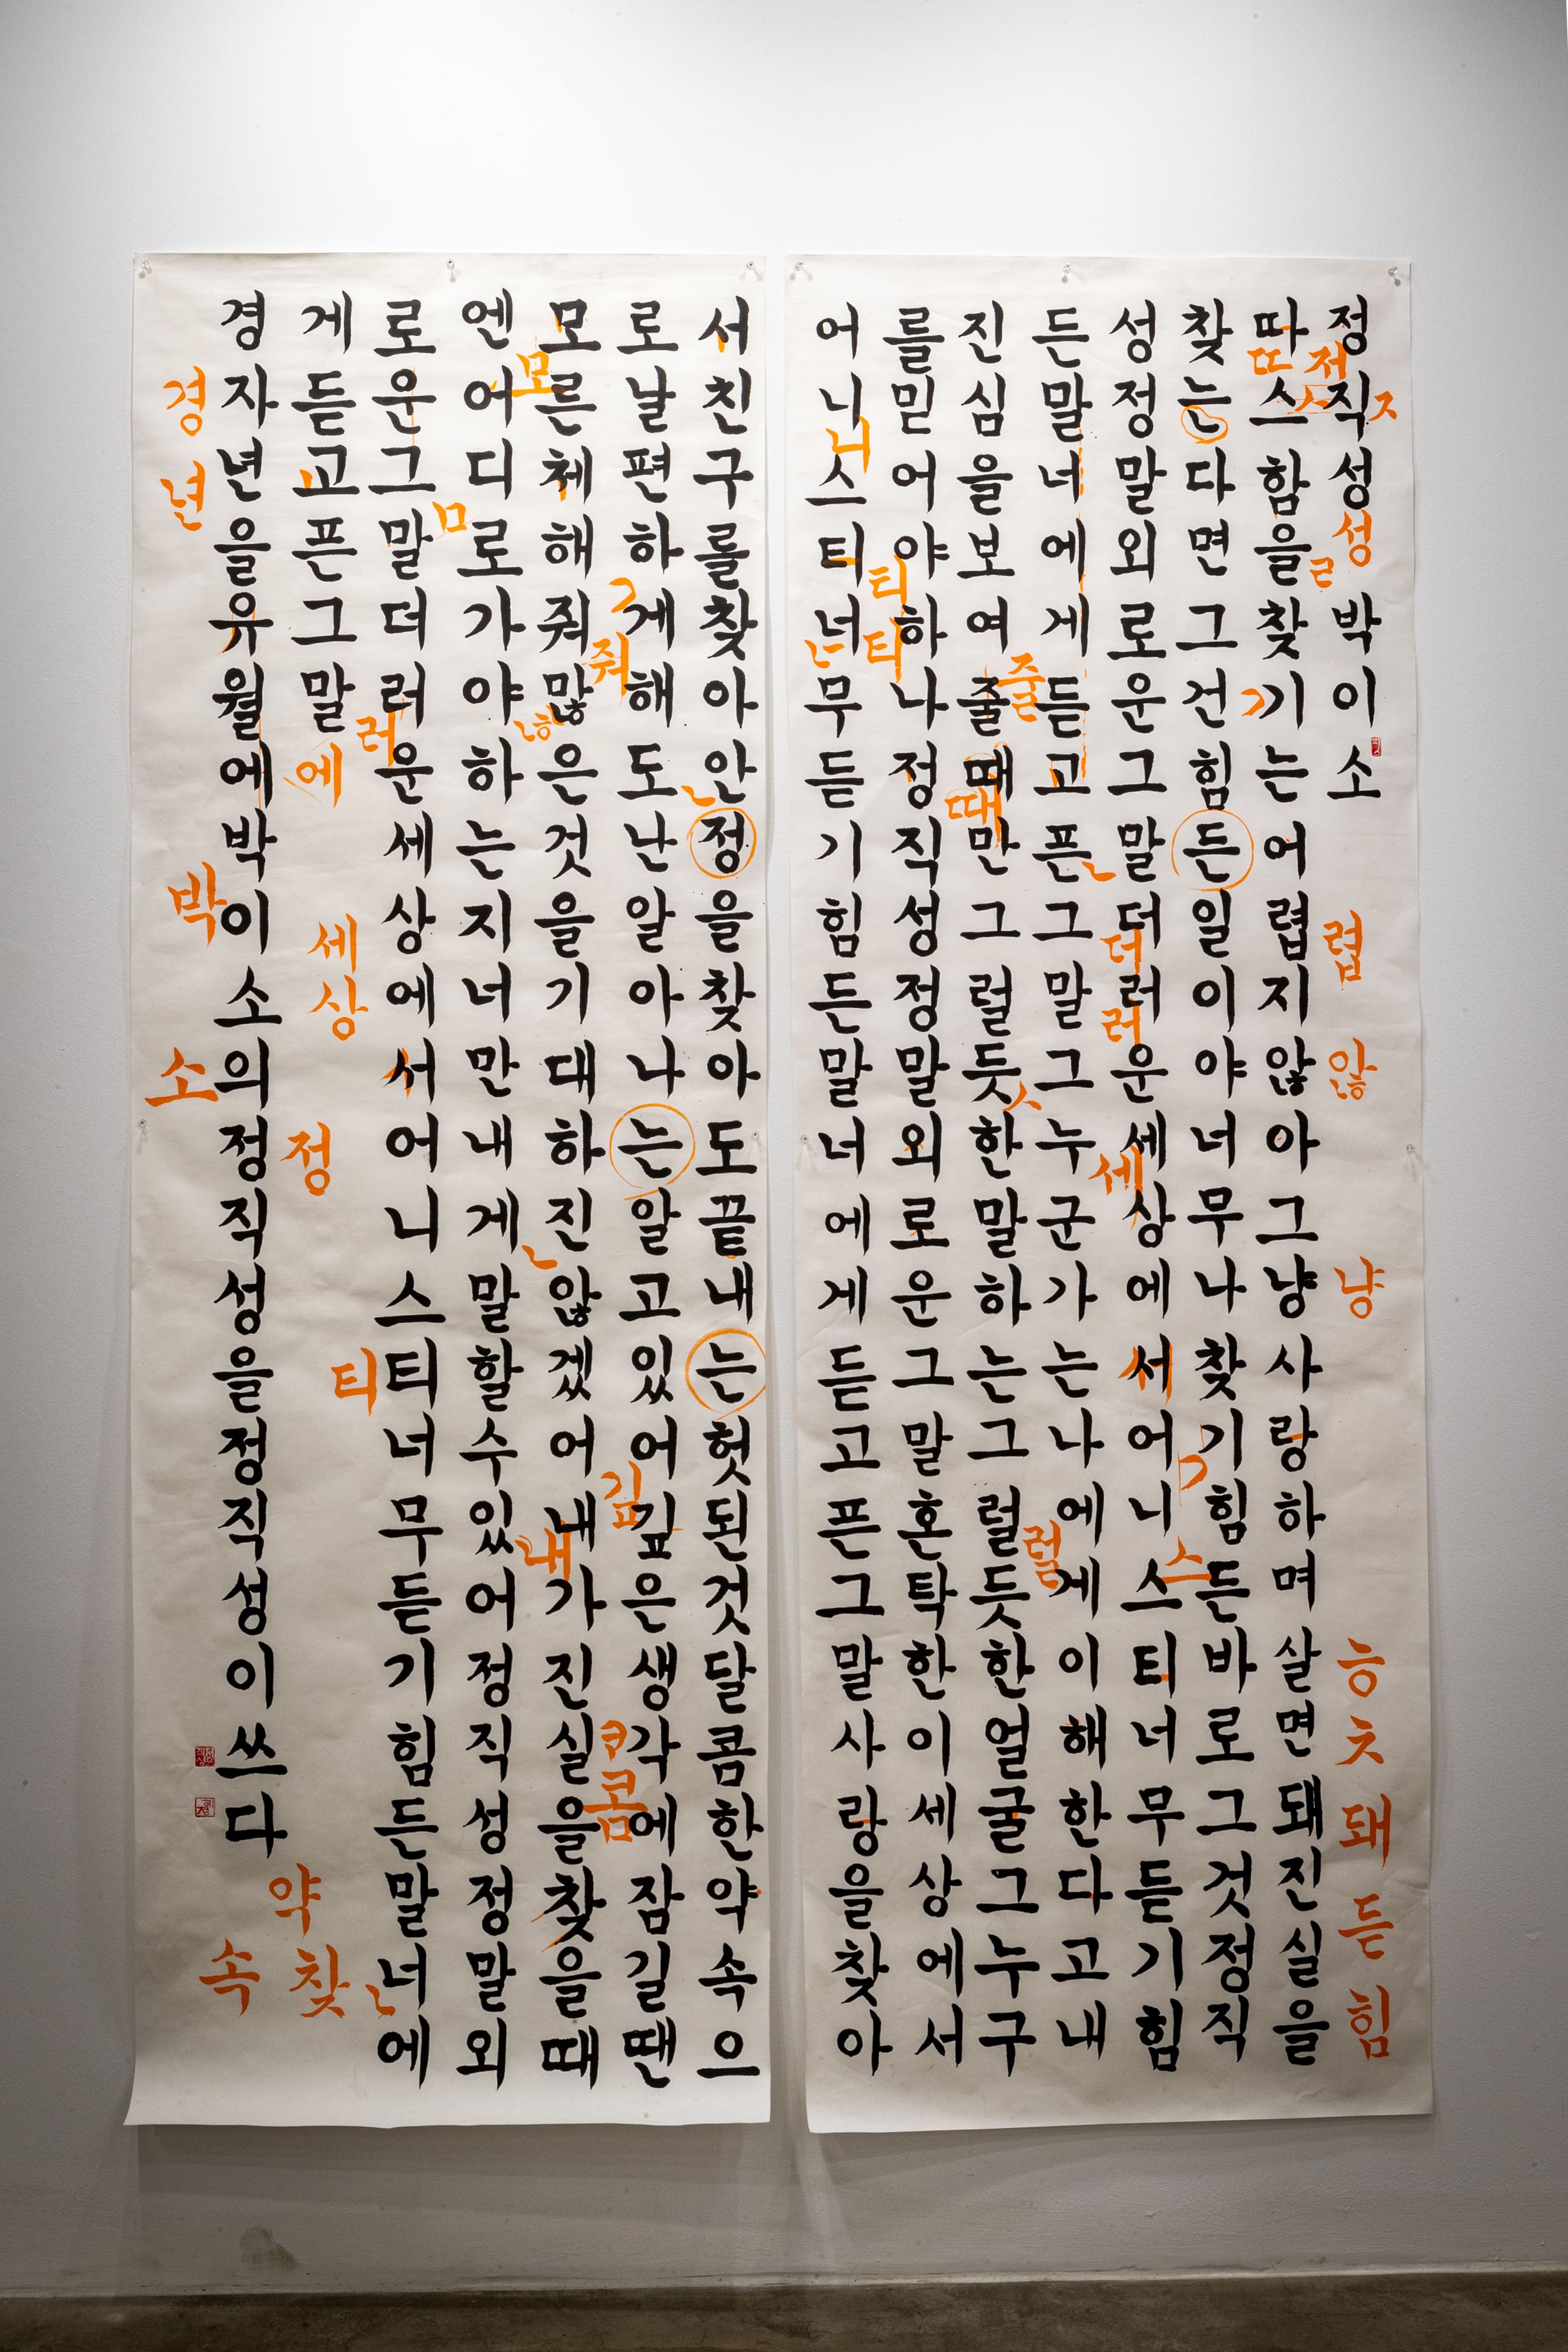 정직성 박이소
따스함을찾기는어렵지않아그냥사랑하며살면돼진실을
찾는다면그건힘든일이야너무나찾기힘든바로그것정직
성정말외로운그말더러운세상에서어니스티너무듣기힘
든말너에게듣고픈그말그누군가는나에게이해한다고내
진심을보여줄때만그럴듯한말하는그럴듯한얼굴그누구
를믿어야하나정직성정말외로운그말혼탁한이세상에서
어니스티너무듣기힘든말너에게듣고픈그말사랑을찾아
서친구를찾아안정을찾아도끝내는헛된것달콤한약속으
로날편하게해도난알아나는알고있어깊은생각에잠길땐
모른체해줘많은것을기대하진않겠어내가진실을찾을때
엔어디로가야하는지너만내게말할수있어정직성정말외
로운그말더러운세상에서어니스티너무듣기힘든말너에
게듣고픈그말
경자년을유월에박이소의정직성을정직성이쓰다
성
렵
않
냥
돼
듣
힘
더
러
세
때
티
티
줘
콤
모
러
티
에
세상
정
약
찾
경
년
박
소
속